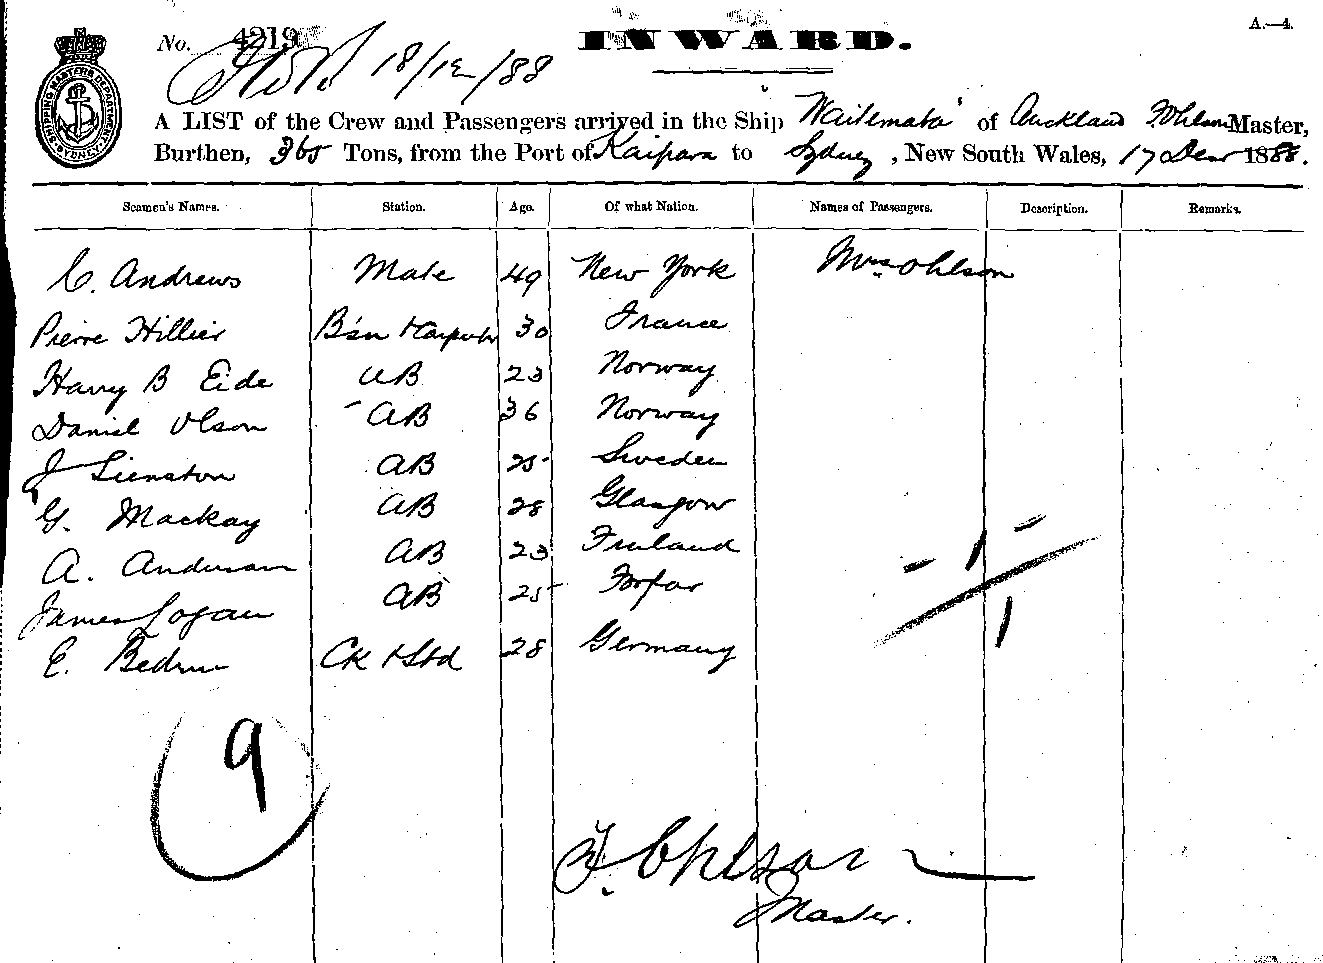 A.—4.
No. 4219
INWARD.
18/12/88
A LIST of the Crew and Passengers arrived in the Ship "Waitemata" of Auckland F. Ohlson Master,
Burthen, 365 Tons, from the Port of Kaipara to Sydney, New South Wales, 17 Decr 1888.
SHIPPING MASTER'S DEPARTMENT SYDNEY
Seamen's Names. Station. Age. Of what Nation. Names of Passengers. Description. Remarks.
C. Andrews Mate 49 New York Mrs Ohlson
Pierre Hillier B'sn 30 France
Harry B Eide AB 23 Norway
Daniel Olson AB 36 Norway
J AB 25 Sweden
G. Mackay AB 28 Glasgow
A. Anderson AB 23 Finland
James Logan AB 25 Forfar
E. Ck & Std 28 Germany
- 1 -
1
9
F. Ohlson
Master.